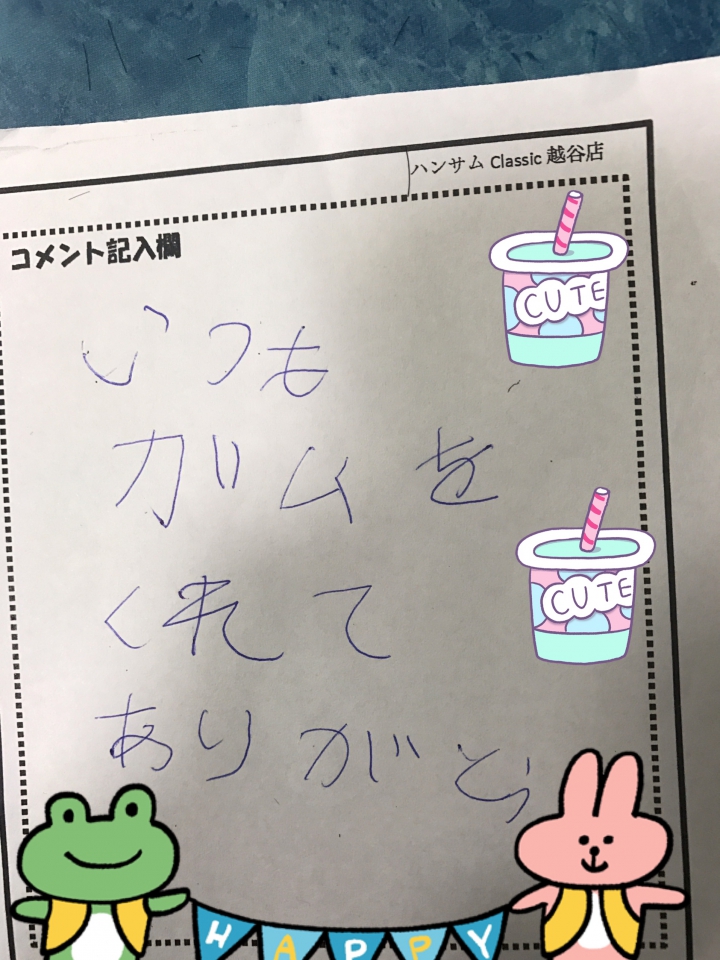 ハンサム Classic 越谷店
コメント記入欄
CUTE
いつも
ガムを
CUTE
くれて
ありがとう
HAPPY